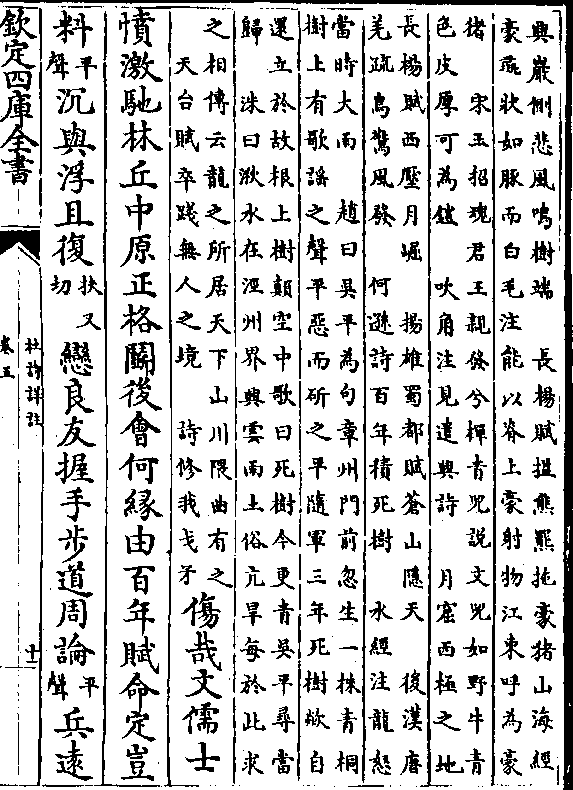 興嚴側悲風鳴樹端　長楊賦搤熊羆拖豪豬山海經
豪彘狀如豚而白毛注能以脊上豪射物江東呼為豪
猪　宋玉招魂君王親發兮憚青兕説文兕如野牛青
色皮厚可為鎧　吹角注見遣興詩　月窟西極之地
長楊賦西壓月𡿾　揚雄蜀都賦蒼山隱天　後漢唐
羌疏鳥驚風發　何遜詩百年積死樹　水經注龍怒
當時大雨　趙曰吳平為句章州門前忽生一株青桐
樹上有歌謡之聲平惡而斫之平隨軍三年死樹欻自
還立於故根上樹顛空中歌曰死樹今更青吳平尋當
歸　洙曰湫水在涇州界興雲雨土俗亢旱每於此求
之相傳云龍之所居天下山川隈曲有之
天台賦卒踐無人之境　詩修我戈矛
傷哉文儒士
憤激馳林丘中原正格鬭後會何縁由百年賦命定豈
料平聲沉與浮且復扶又切戀良友握手步道周論平聲兵遠
欽定四庫全書
杜詩詳註
卷五
十二